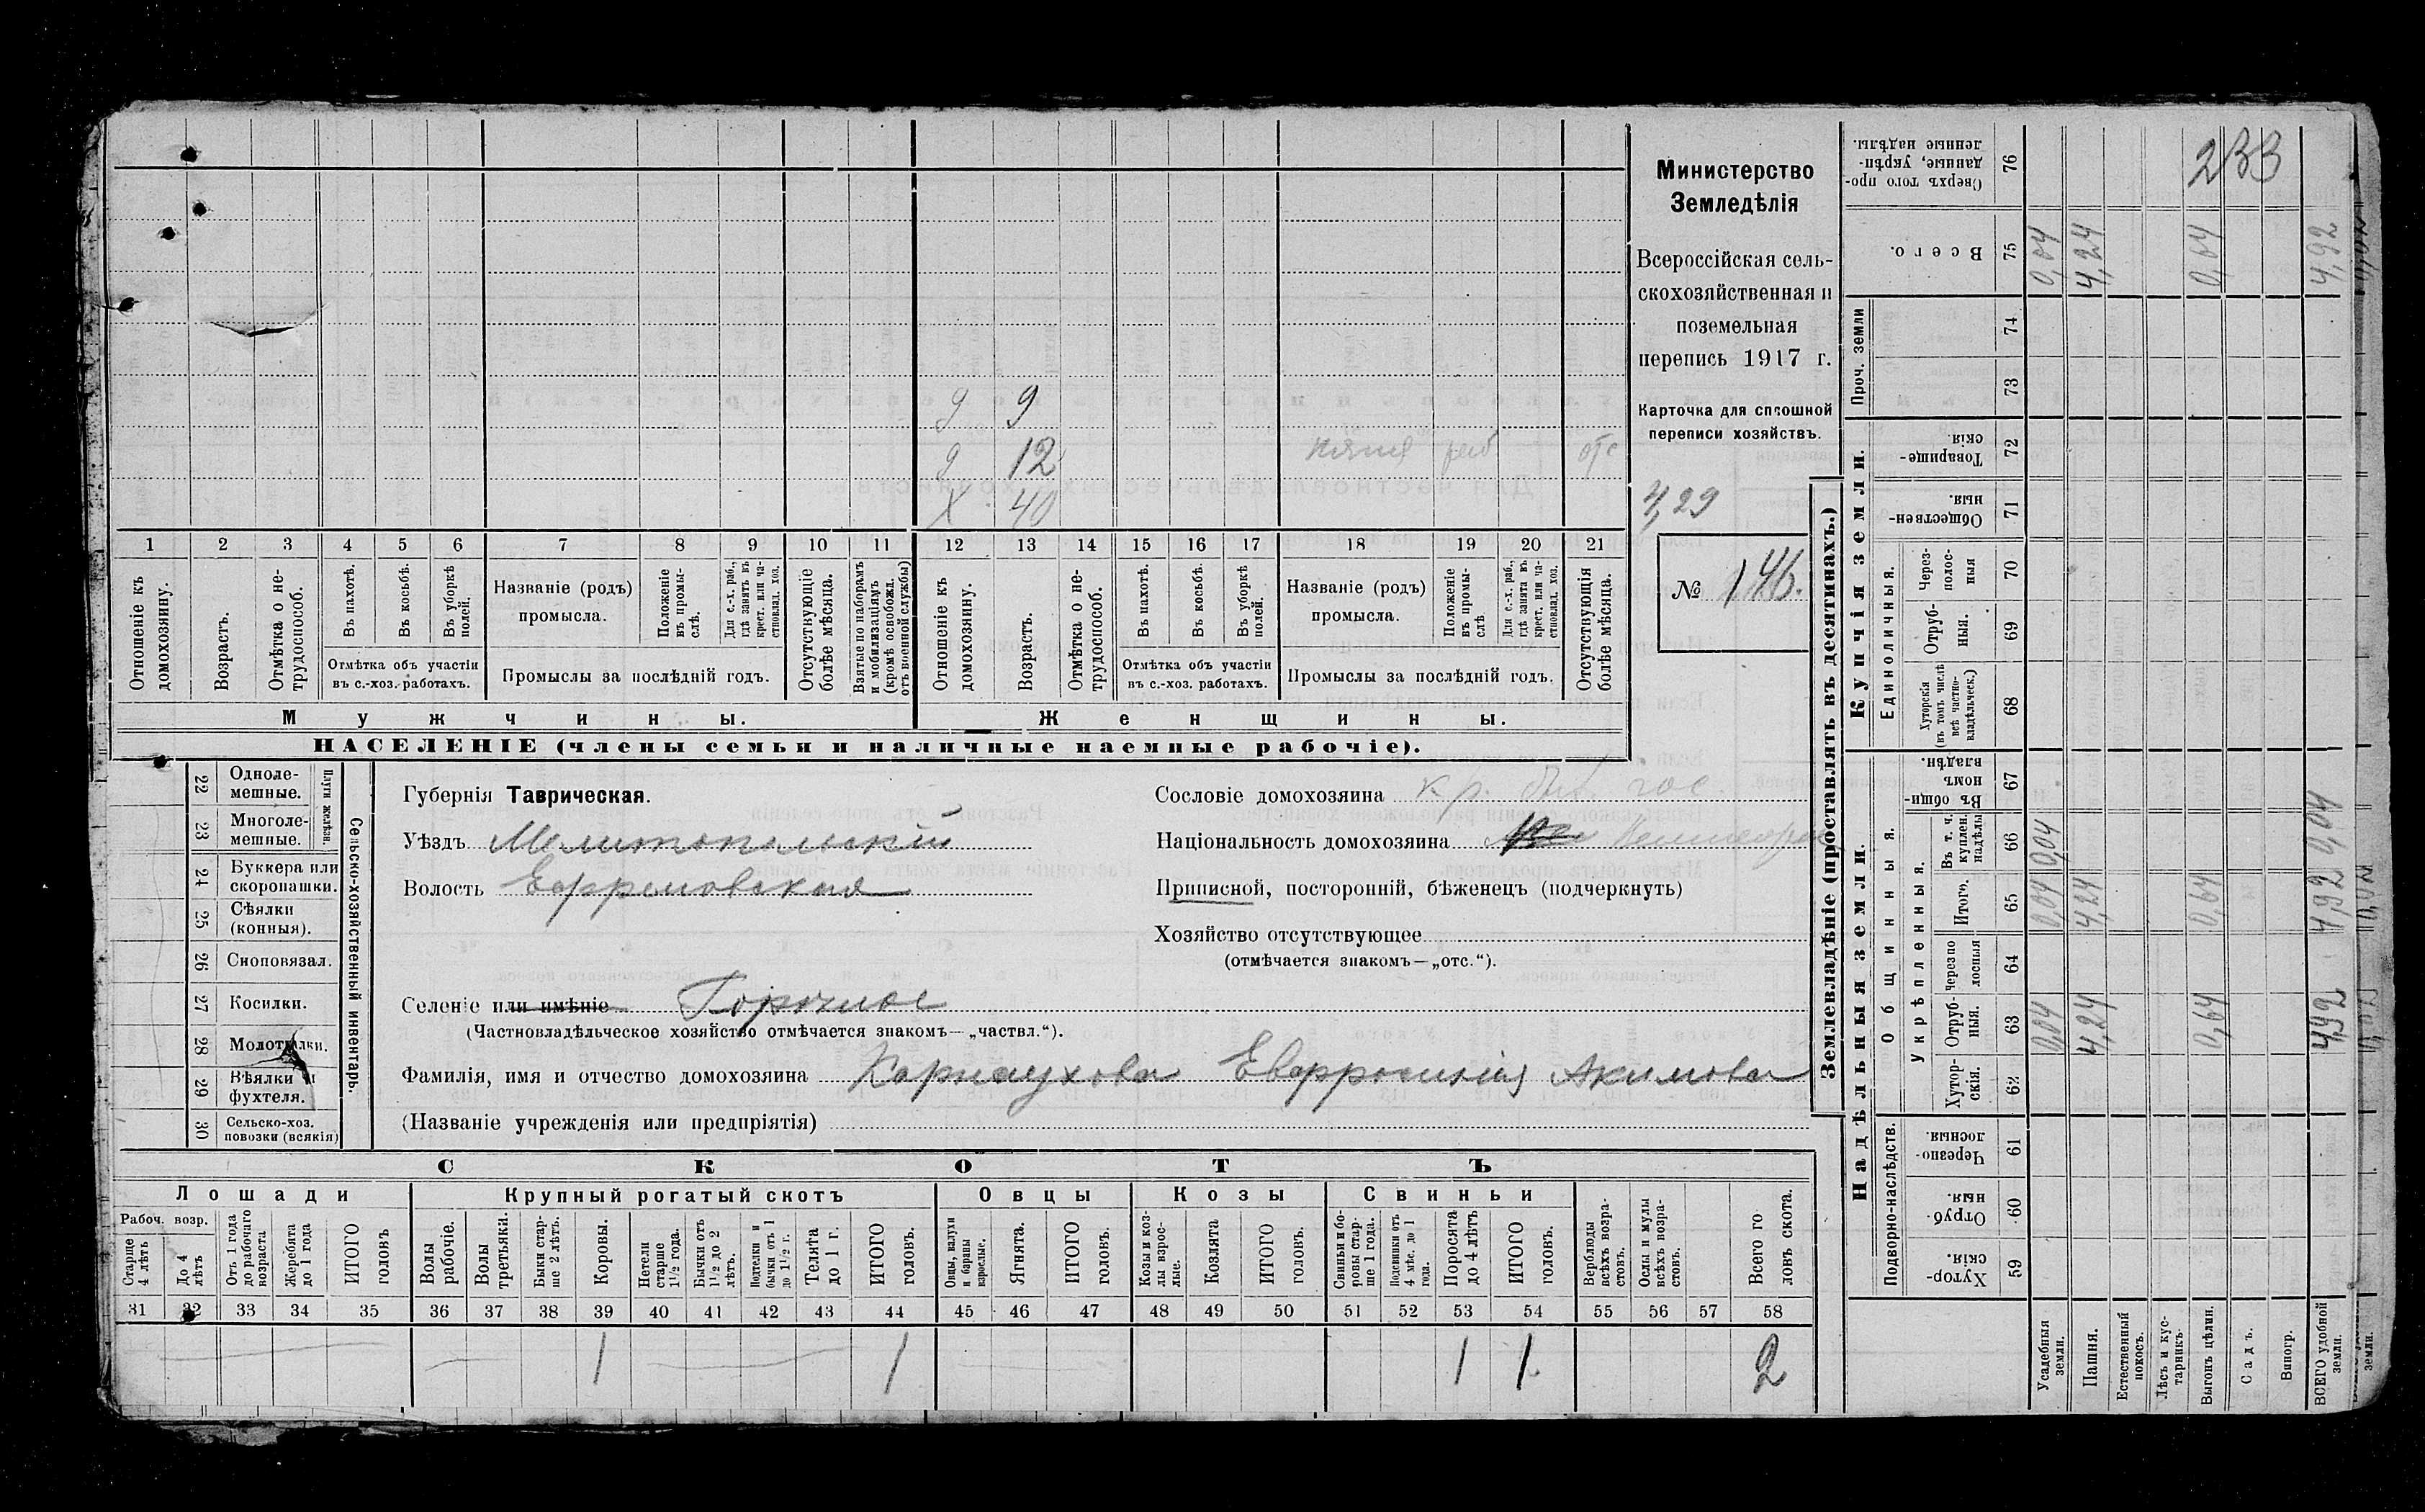 233
Министерство
Земледѣлія
Всероссійская сель-
скохозяйственная и
поземельная
перепись 1917 г.
Карточка для сплошной
переписи хозяйствъ.
4,29
№ 146.
д 9
д 12 няня раб отс
X 40
1 2 3 4 5 6 7 8 9 10 11 12 13 14 15 16 17 18 19 20 21
Отношеніе къ домохозяину.
Возрастъ.
Отмѣтка о не-трудоспособ.
Въ пахотѣ.
Въ косьбѣ.
Въ уборкѣ полей.
Отмѣтка объ участіи
въ с.-хоз. работахъ.
Названіе (родъ)
промысла.
Положеніе въ промы-слѣ.
Для с.-х. раб., гдѣ занятъ въ крест. или ча-стновлад. хоз.
Промыслы за послѣдній годъ.
Отсутствующіе болѣе мѣсяца.
Взятые по наборамъ и мобилизаціямъ (кромѣ освобожд. отъ военной службы)
Отношеніе къ домохозяину.
Возрастъ.
Отмѣтка о не-трудоспособ.
Въ пахотѣ.
Въ косьбѣ.
Въ уборкѣ полей.
Отмѣтка объ участіи
въ с.-хоз. работахъ.
Названіе (родъ)
промысла.
Положеніе въ промы-слѣ
Для с.-х. раб., гдѣ занята въ крест. или ча-стновлад. хоз.
Промыслы за послѣдній годъ.
Отсутствующія болѣе мѣсяца.
Мужчины.
Женщины.
НАСЕЛЕНІЕ (члены семьи и наличные наемные рабочіе).
Сельско-хозяйственный инвентарь.
Плуги желѣзн.
22 Одноле-мешные.
23 Многоле-мешные.
24 Буккера или скоропашки.
25 Сѣялки (конныя).
26 Сноповязал.
27 Косилки.
28 Молотилки.
29 Вѣялки и фухтеля.
30 Сельско-хоз. повозки (всякія)
Губернія Таврическая.
Уѣздъ Мелитопольскій
Волость Ефремовская
Селеніе или имѣніе Горочное
(Частновладѣльческое хозяйство отмѣчается знакомъ—„частвл.“).
Фамилія, имя и отчество домохозяина Карнаухова Евфросинія Акимова
(Названіе учрежденія или предпріятія)
Сословіе домохозяина кр. быв. гос.
Національность домохозяина
Приписной, посторонній, бѣженецъ (подчеркнуть)
Хозяйство отсутствующее
(отмѣчается знакомъ—„отс.“).
СКОТЪ
Лошади
Крупный рогатый скотъ
Овцы
Козы
Свиньи
Рабоч. возр.
Старше 4 лѣтъ
До 4 лѣтъ
Отъ 1 года до рабочаго возраста
Жеребята до 1 года
ИТОГО головъ
Волы рабочіе.
Волы третьяки.
Быки стар-ше 2 лѣтъ.
Коровы.
Нетели старше 1½ года.
Бычки отъ 1½ до 2 лѣтъ.
Подтелки и бычки отъ 1 до 1½ г.
Телята до 1 г.
ИТОГО головъ.
Овцы, валухи и бараны взрослые.
Ягнята.
ИТОГО головъ.
Козы и коз-лы взрос-лые.
Козлята
ИТОГО головъ.
Свиньи и бо-ровы стар-ше 1 года.
Подсвинки отъ 4 мѣс. до 1 года.
Поросята до 4 лѣтъ
ИТОГО головъ.
Верблюды всѣхъ возра-стовъ.
Ослы и мулы всѣхъ возра-стовъ.
Всего го ловъ скота.
31 32 33 34 35 36 37 38 39 40 41 42 43 44 45 46 47 48 49 50 51 52 53 54 55 56 57 58
1 1 1 1 2
Землевладѣніе (проставлять въ десятинахъ.)
Надѣльныя земли.
Купчія земли.
Проч. земли
Подворно-наслѣдств.
Общинныя.
Укрѣпленныя.
Единоличныя.
59 Хутор-скія.
60 Отруб-ныя.
61 Черезпо-лосныя.
62 Хутор-скія.
63 Отруб-ныя. 0,04 4,24 0,64 4,92
64 Черезпо лосныя
65 Итого. 0,04 4,24 0,64 4,92
66 Въ т. ч. куплен. надѣлы 0,04 0,04
67 Въ общи-номъ владѣн.
68 Хуторскія (въ томъ числѣ всѣ частно-владѣльческ.)
69 Отруб-ныя.
70 Через-полос-ныя
71 Обществен-ныя.
72 Товарище-скія.
73
74
75 Всего. 0,04 4,24 0,64 4,92
76 Сверхъ того про-данные, укрѣп-ленные надѣлы.
Усадебныя земли.
Пашня.
Естественный покосъ.
Лѣсъ и кус-тарникъ.
Выгонъ цѣлин.
Садъ.
Виногр.
ВСЕГО удобной земли.